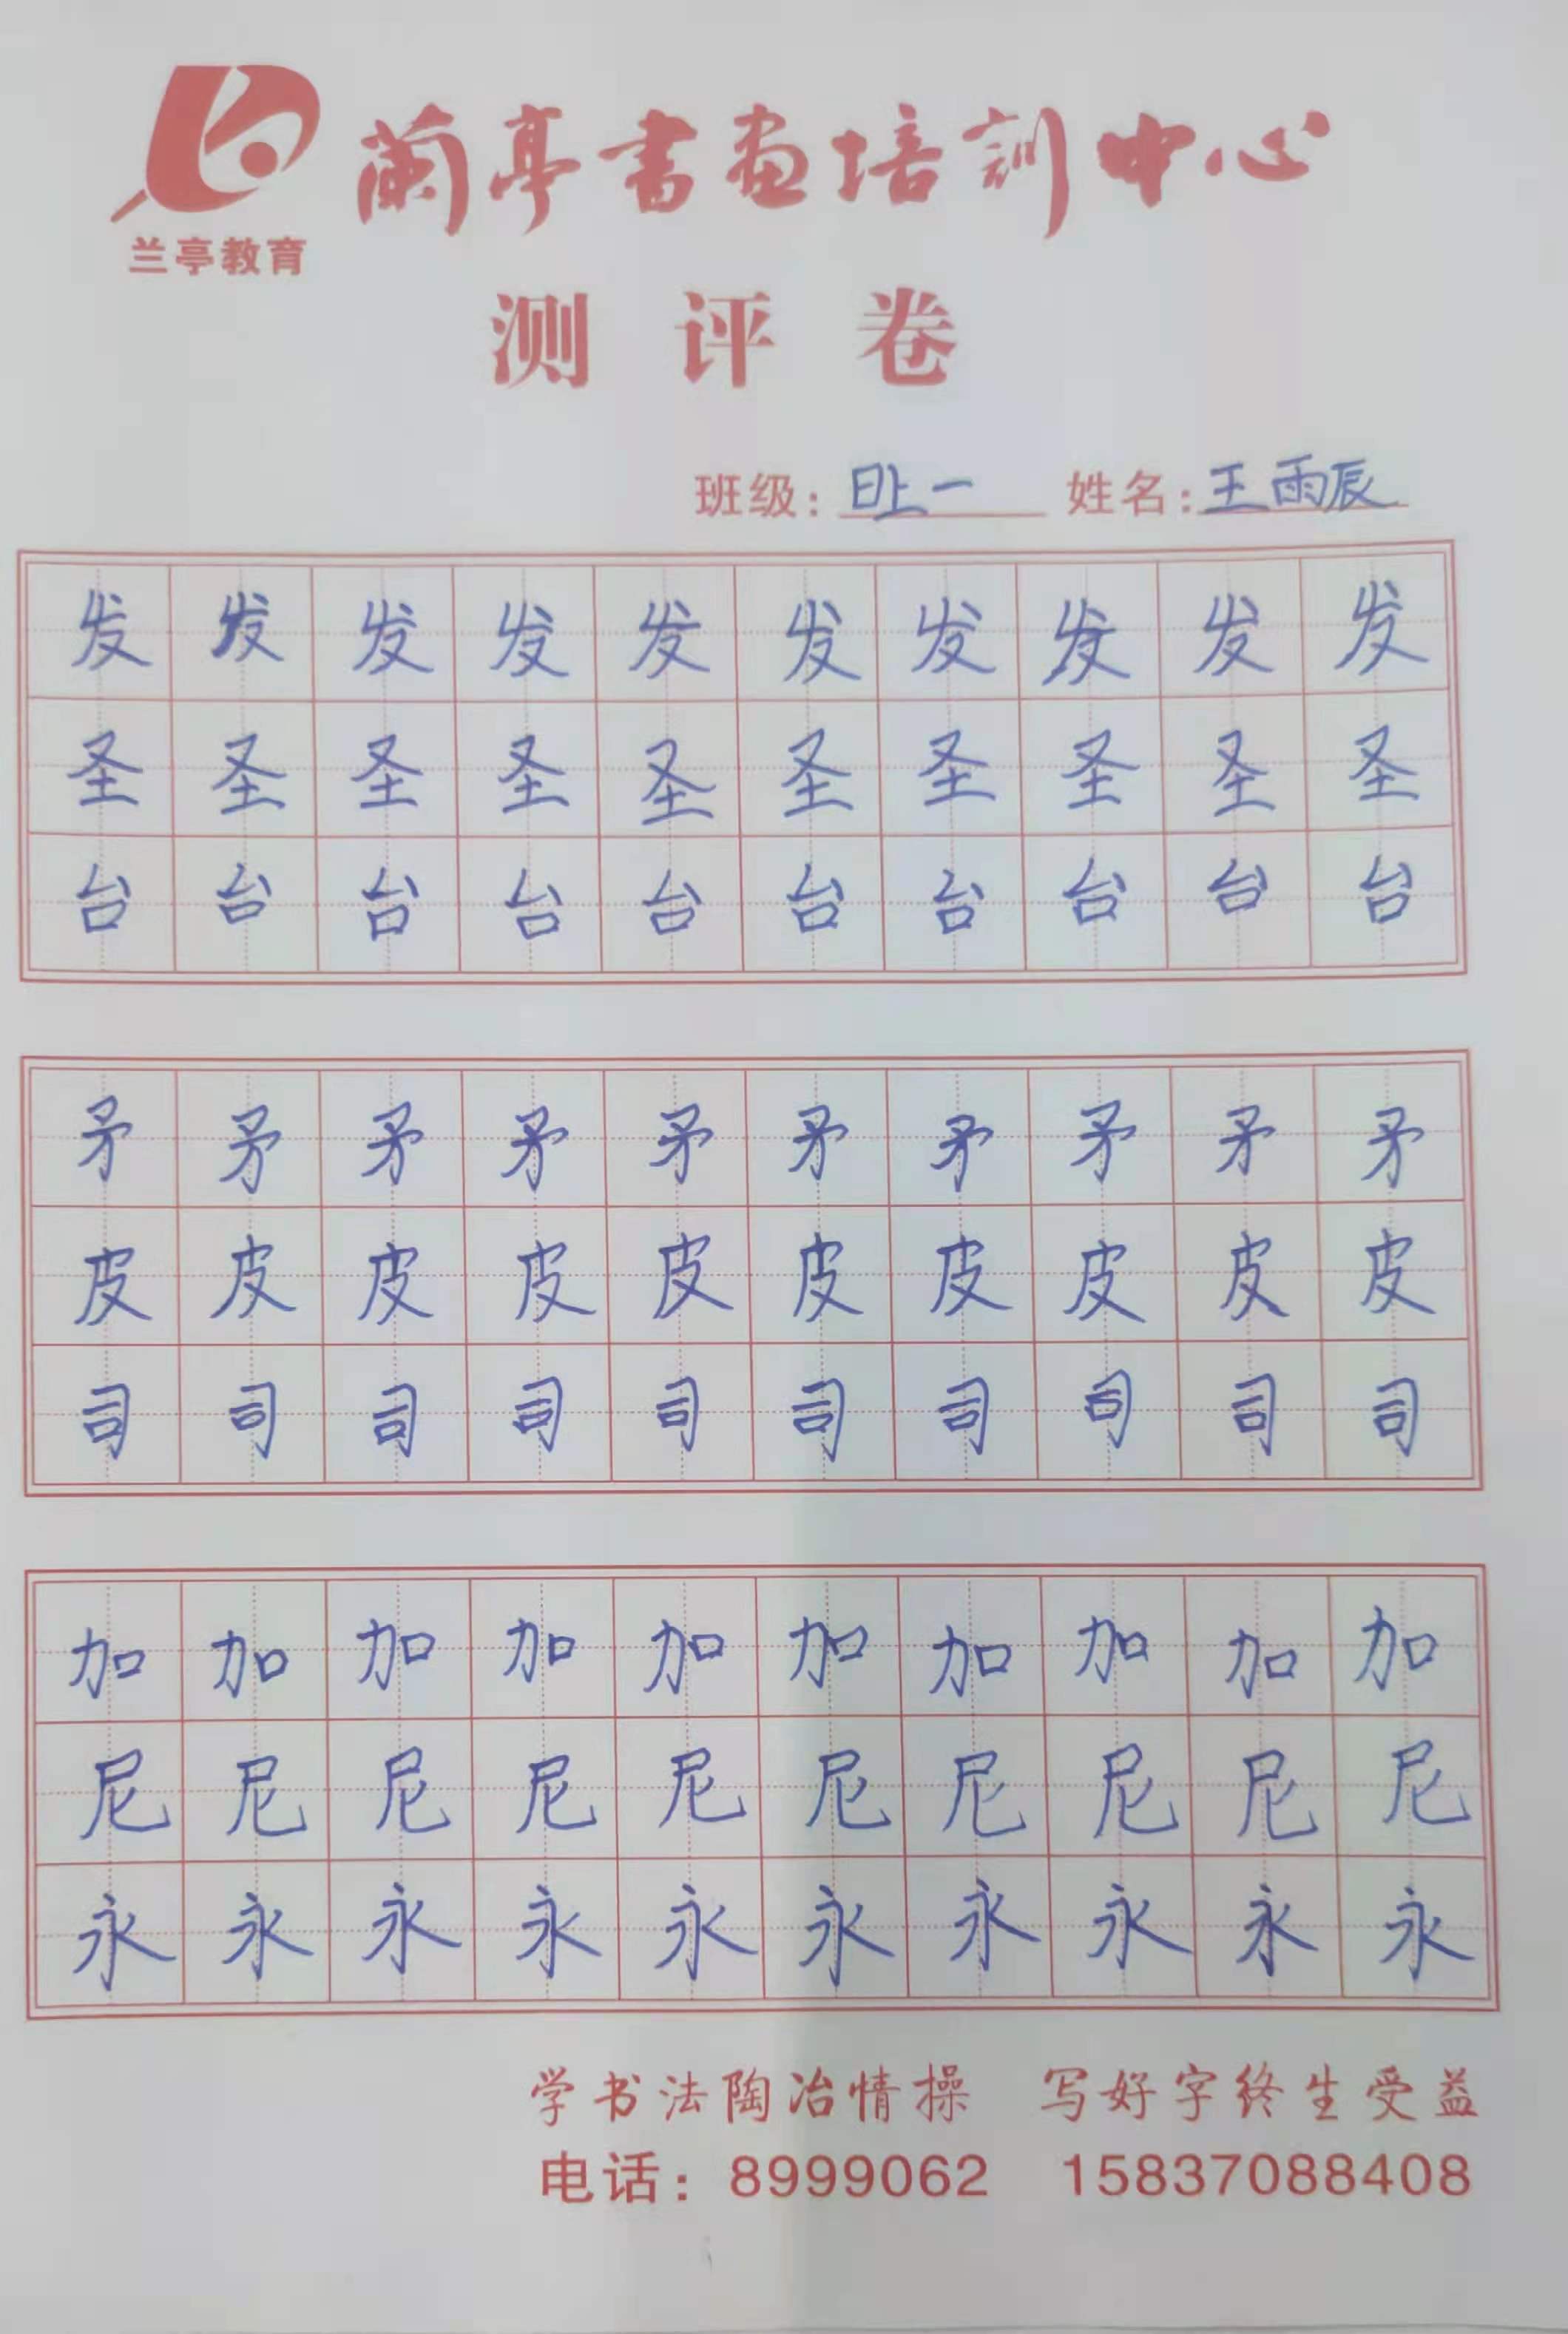 蘭亭书画培训中心
兰亭教育
测评卷
班级：日上一 姓名：王雨辰
发发发发发发发发发发
圣圣圣圣圣圣圣圣圣圣
台台台台台台台台台台
矛矛矛矛矛矛矛矛矛矛
皮皮皮皮皮皮皮皮皮皮
司司司司司司司司司司
加加加加加加加加加加
尼尼尼尼尼尼尼尼尼尼
永永永永永永永永永永
学书法陶冶情操 写好字终生受益
电话：8999062 15837088408